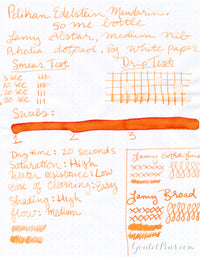 Pelikan Edelstein Mandarin,
50 ml bottle
Lamy Alstar, medium nib
Rhodia dotpad, 80g white paper
Smear Test
Drip Test
5 sec
10 sec
20 sec
30 sec
Swabs:
1 2 3
Dry time: 20 seconds
Saturation: High
Water resistance: Low
Ease of cleaning: Easy
Shading: High
flow: Medium
Lamy Extra fine
Lamy Broad
GouletPens.com